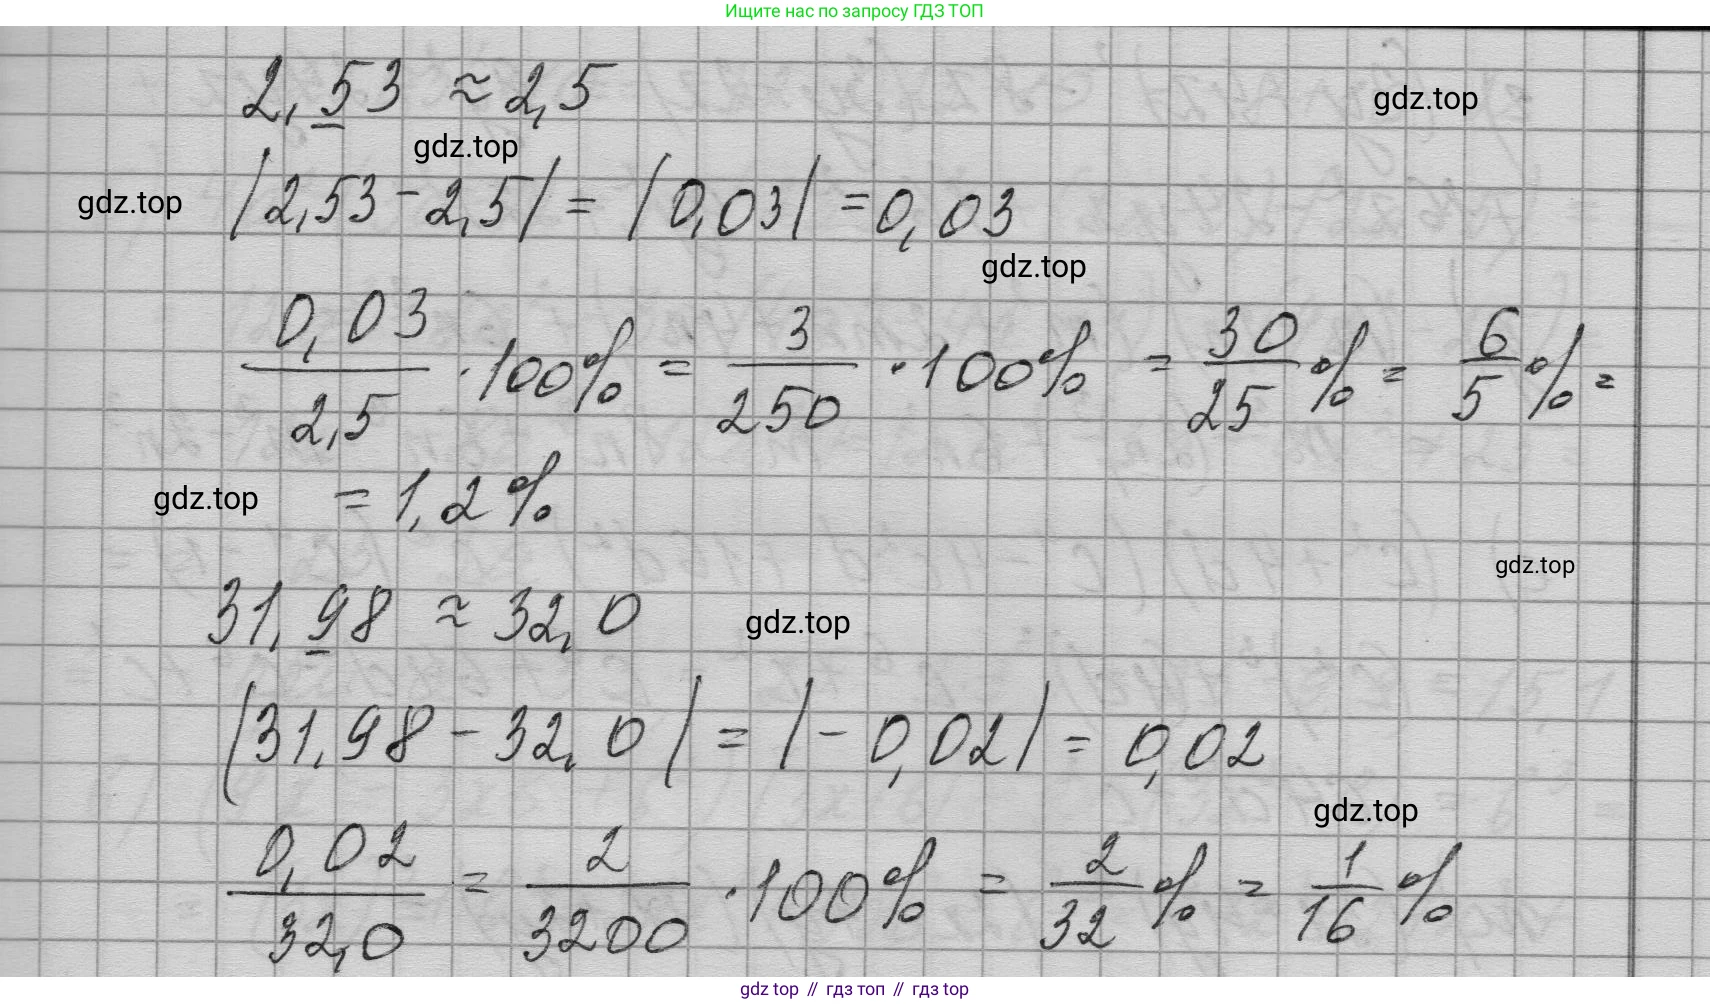 Ищите нас по запросу ГДЗ ТОП
2,53 ≈ 2,5
gdz.top
gdz.top
gdz.top
|2,53 - 2,5| = |0,03| = 0,03
gdz.top
0,03/2,5 · 100% = 3/250 · 100% = 30/25 % = 6/5 % =
gdz.top
= 1,2 %
gdz.top
31,98 ≈ 32,0
gdz.top
|31,98 - 32,0| = |- 0,02| = 0,02
gdz.top
0,02/32,0 = 2/3200 · 100% = 2/32 % = 1/16 %
gdz top // гдз топ // гдз top